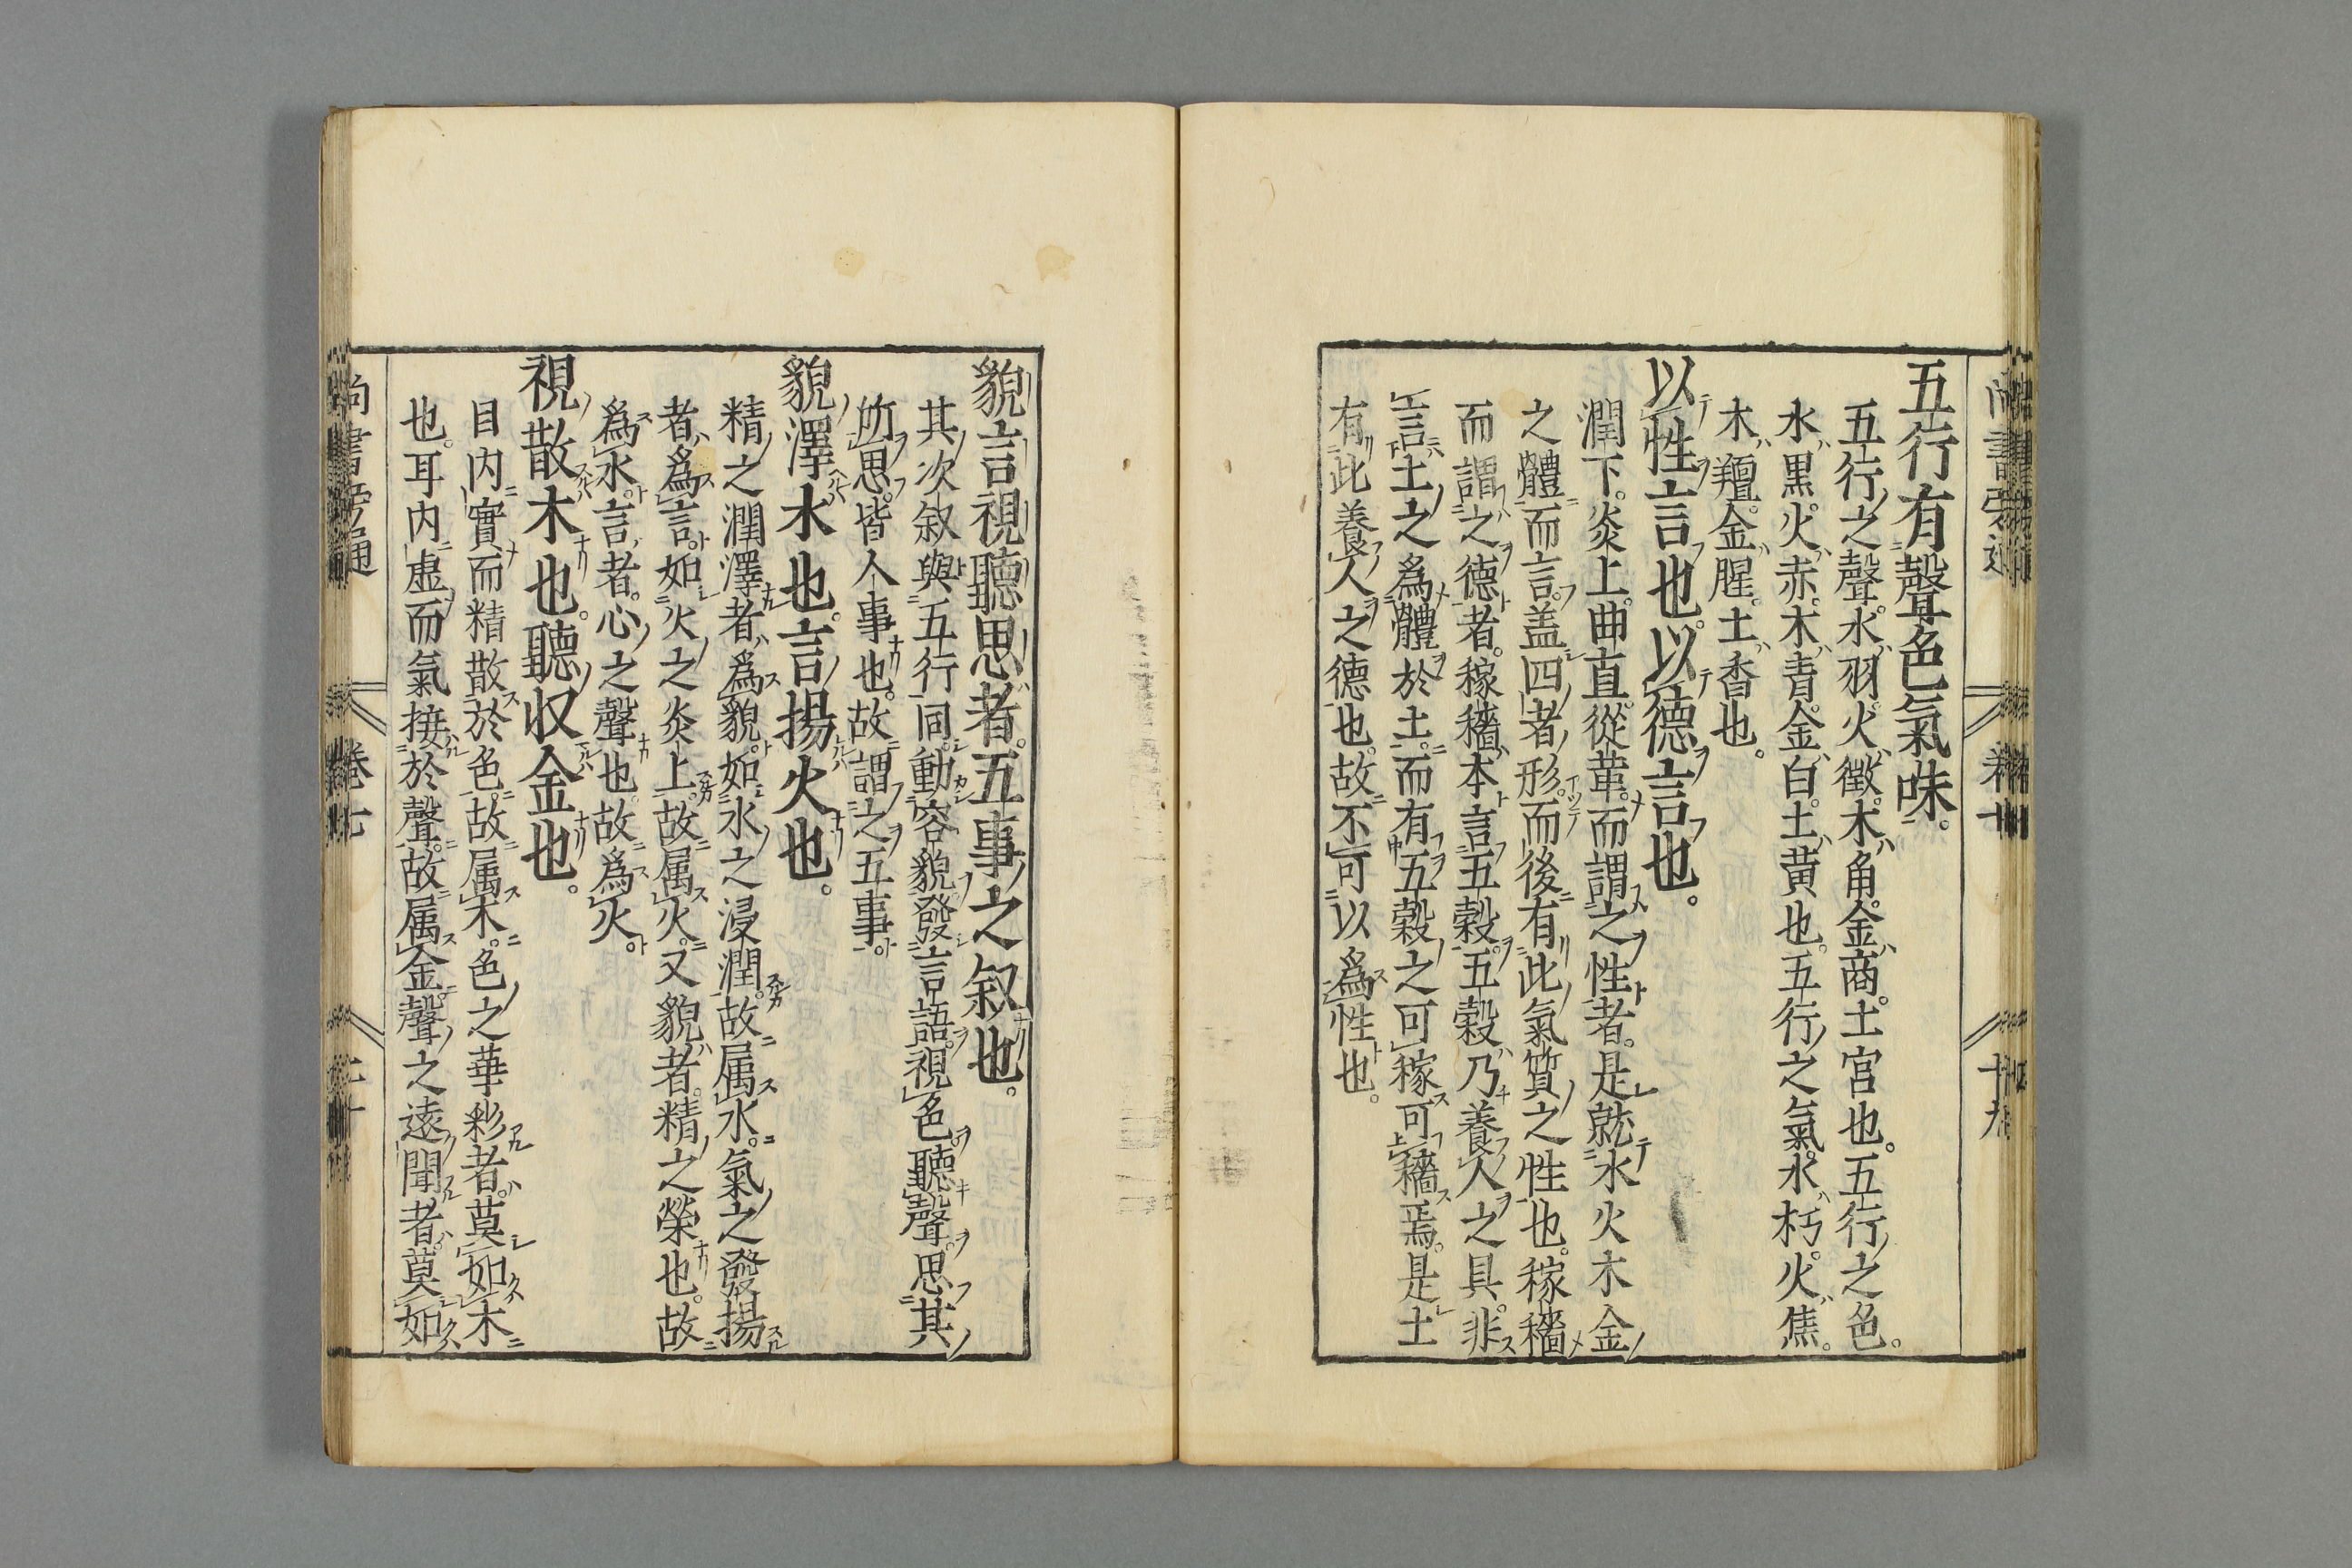 五行有聲色氣味。
五行之聲。水羽。火徵。木角。金商。土宮也。五行之色。
水黒。火赤。木青。金白。土黄也。五行之氣。水朽。火焦。
木羶。金腥。土香也。
以性言也。以德言也。
潤下。炎上。曲直。從革。而謂之性者。是就水火木金
之體而言。盖四者形而後有此氣質之性也。稼穡
而謂之德者。稼穡本言五穀。五穀乃養人之具。非
言土之為體於土。而有五穀之可稼可穡焉。是土
有此養人之德也。故不可以為性也。
貌言視聽思者。五事之叙也。
其次叙與五行同。動容貌發言語。視色聽聲。思其
所思。皆人事也。故謂之五事。
貌澤水也。言揚火也。
精之潤澤者為貌。如水之浸潤。故属水。氣之發揚
者為言。如火之炎上。故属火。又貌者。精之榮也。故
為水。言者。心之聲也。故為火。
視散木也。聽収金也。
目内實而精散於色。故属木。色之華彩者。莫如木
也。耳内虚而氣接於聲。故属金。聲之遠聞者。莫如
尚書旁通
卷七